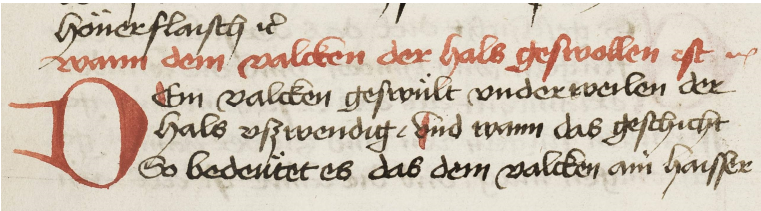 hönerflaisch ⁊c
wann dem valcken der hals geswollen ist
DEm valcken geswült vnderweilen der
hals vßwendig / vnd wann das geschicht
So bedeütet es das dem valcken ain haisser